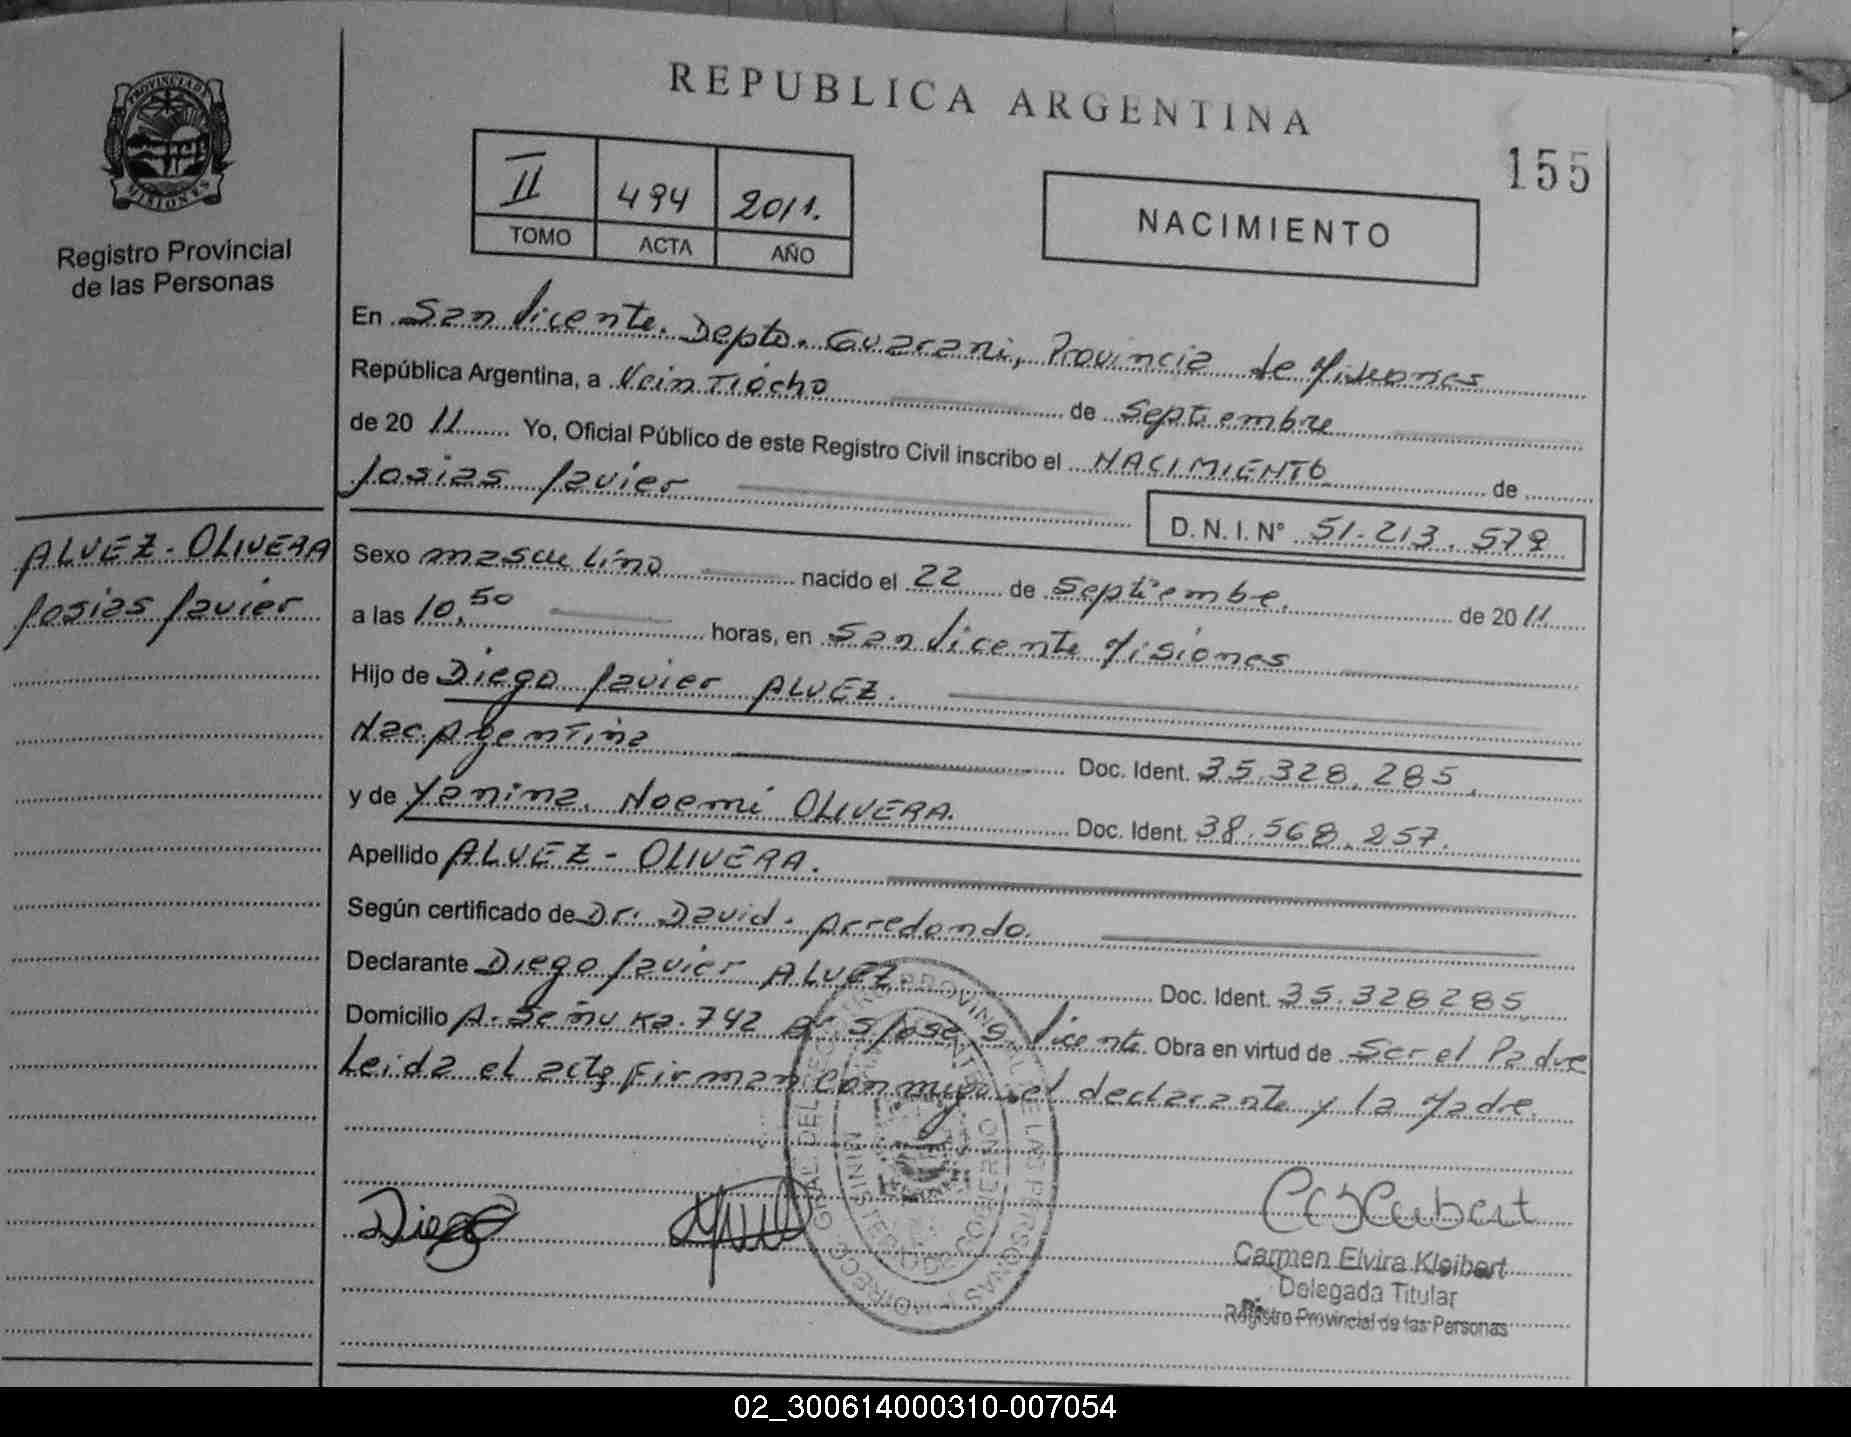 REPUBLICA ARGENTINA
155
PROVINCIA DE MISIONES
Registro Provincial
de las Personas
II 494 2011.
TOMO ACTA AÑO
NACIMIENTO
En San Vicente. Depto. Guarani, Provincia de Misiones
República Argentina, a Veintiocho de Septiembre
de 20 11 Yo, Oficial Público de este Registro Civil inscribo el NACIMIENTO de
Josias Javier
D. N. I. Nº 51.213.579
ALVEZ - OLIVERA
Josias Javier
Sexo masculino nacido el 22 de Septiembe. de 20 11
a las 10,50 horas, en San Vicente Misiones
Hijo de Diego Javier ALVEZ.
Nac. Argentina Doc. Ident. 35.328.285.
y de Yanina. Noemí OLIVERA. Doc. Ident. 38.568.257.
Apellido ALVEZ - OLIVERA.
Según certificado de Dr. David. Arredondo.
Declarante Diego Javier ALVEZ Doc. Ident. 35.328285
Domicilio 742 Bº S/Jose S. Vicente Obra en virtud de Ser el Padre
Leida el acta firman conmigo el declarante y la Madre.
Diego
Carmen Elvira Kleibert
Delegada Titular
Registro Provincial de las Personas
02_300614000310-007054